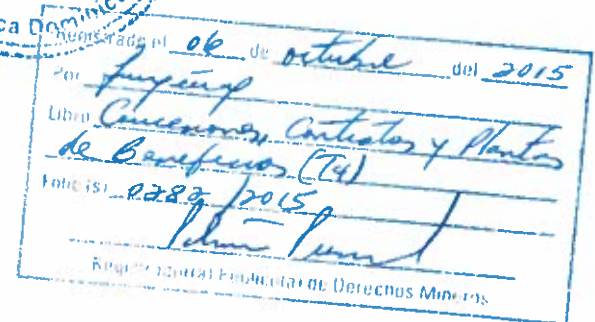 ca Dominic
Registrado el 06 de octubre del 2015
Por
Libro Concesiones, Contratos y Plantas
de Beneficios (T4)
Folio(s) 0282/2015
Registrador(a) de Derechos Mineros